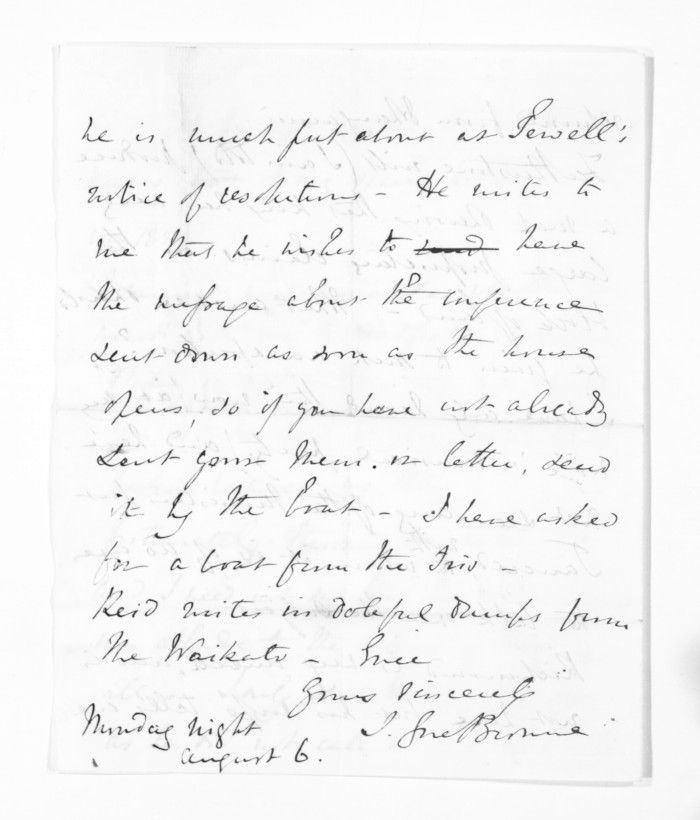 he is much put about at Sewell's
notice of resolutions – He writes to
me that he wishes to send have
the message about the conference
sent down as soon as the house
opens, so if you have not already
sent your Mem. or letter, send
it by the boat – I have asked
for a boat from the Iris –
Reid writes in doleful dumps from
the Waikato –
Yours sincerely
T. Gore Browne
Monday night
August 6.